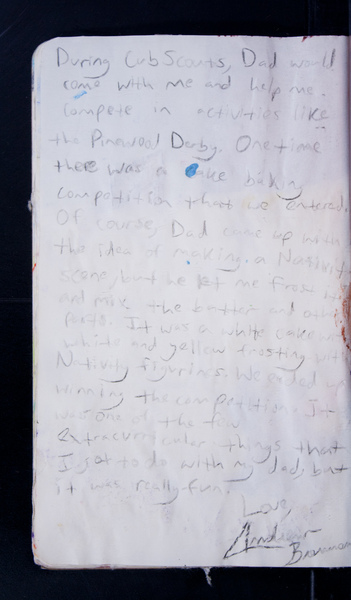 During Cub Scouts, Dad would
come with me and help me
compete in activities like
the Pinewood Derby. One time
there was a cake baking
competition that we entered.
Of course, Dad came up with
the idea of making a Nativity
scene, but he let me frost it
and mix the batter and other
parts. It was a white cake w
white and yellow frosting with
Nativity figurines. We ended up
winning the competition. It
was one of the few
extracurricular things that
I got to do with my dad, but
it was really fun.
Love,